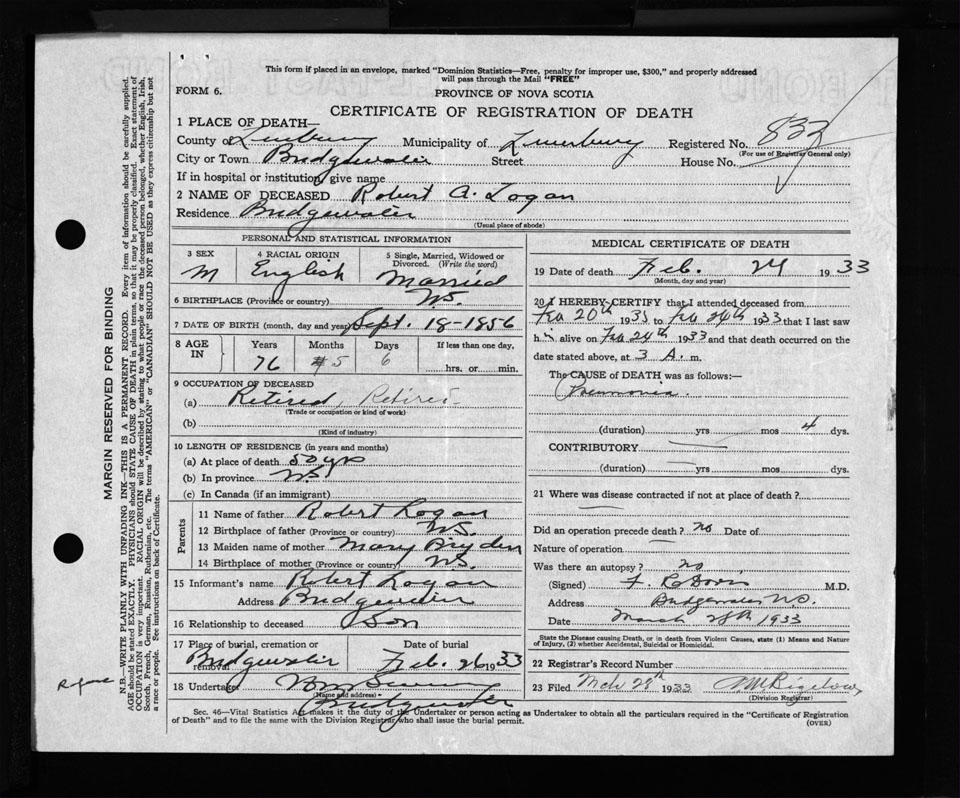 This form if placed in an envelope, marked "Dominion Statistics—Free, penalty for improper use, $300," and properly addressed
will pass through the Mail "FREE"
FORM 6.
PROVINCE OF NOVA SCOTIA
CERTIFICATE OF REGISTRATION OF DEATH
1 PLACE OF DEATH—
County of Lunenburg Municipality of Lunenburg Registered No. 832
(For use of Registrar General only)
City or Town Bridgewater Street House No.
If in hospital or institution, give name
2 NAME OF DECEASED Robert A. Logan
Residence Bridgewater
(Usual place of abode)
PERSONAL AND STATISTICAL INFORMATION
3 SEX M
4 RACIAL ORIGIN English
5 Single, Married, Widowed or Divorced. (Write the word) Married
6 BIRTHPLACE (Province or country) N.S.
7 DATE OF BIRTH (month, day and year) Sept. 18-1856
8 AGE IN
Years Months Days If less than one day,
76 5 6 hrs. or min.
9 OCCUPATION OF DECEASED
(a) Retired, Retired
(Trade or occupation or kind of work)
(b)
(Kind of industry)
10 LENGTH OF RESIDENCE (in years and months)
(a) At place of death 50 yrs
(b) In province N.S.
(c) In Canada (if an immigrant)
Parents
11 Name of father Robert Logan
12 Birthplace of father (Province or country) N.S.
13 Maiden name of mother Mary Bryden
14 Birthplace of mother (Province or country) N.S.
15 Informant's name Robert Logan
Address Bridgewater
16 Relationship to deceased Son
17 Place of burial, cremation or removal Bridgewater
Date of burial Feb. 26 1933
18 Undertaker Wm
(Name and address)
Bridgewater
MEDICAL CERTIFICATE OF DEATH
19 Date of death Feb. 24 1933
(Month, day and year)
20 I HEREBY CERTIFY that I attended deceased from
Feb 20th 1933 to Feb 24th 1933 that I last saw
him alive on Feb 24th 1933 and that death occurred on the
date stated above, at 3 A. m.
The CAUSE of DEATH was as follows:—
Pneumonia.
(duration) yrs mos 4 dys.
CONTRIBUTORY
(duration) yrs mos dys.
21 Where was disease contracted if not at place of death?
Did an operation precede death? no Date of
Nature of operation
Was there an autopsy? no
(Signed) F. R. Davis M.D.
Address Bridgewater N.S.
Date March 28th 1933
State the Disease causing Death, or in death from Violent Causes, state (1) Means and Nature
of Injury, (2) whether Accidental, Suicidal or Homicidal.
22 Registrar's Record Number
23 Filed Mch 28th 1933
(Division Registrar)
Sec. 46—Vital Statistics Act makes it the duty of the Undertaker or person acting as Undertaker to obtain all the particulars required in the "Certificate of Registration
of Death" and to file the same with the Division Registrar who shall issue the burial permit.
(OVER)
MARGIN RESERVED FOR BINDING
N.B.—WRITE PLAINLY WITH UNFADING INK—THIS IS A PERMANENT RECORD. Every item of information should be carefully supplied.
AGE should be stated EXACTLY. PHYSICIANS should STATE CAUSE OF DEATH in plain terms, so that it may be properly classified. Exact statement of
OCCUPATION is very important. RACIAL ORIGIN will be described by stating to what people or race the deceased person belonged, whether English, Irish,
Scotch, French, German, Russian, Ruthenian, etc. The terms "AMERICAN" or "CANADIAN" SHOULD NOT BE USED as they express citizenship but not
a race or people. See instructions on back of Certificate.